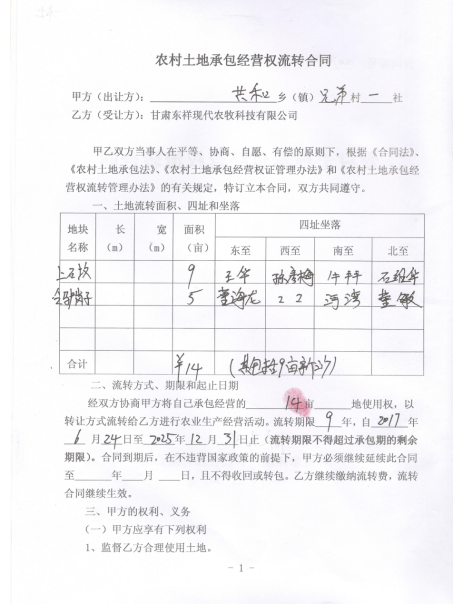 农村土地承包经营权流转合同
甲方（出让方）：共和 乡（镇）兄弟 村 一 社
乙方（受让方）：甘肃东祥现代农牧科技有限公司
甲乙双方当事人在平等、协商、自愿、有偿的原则下，根据《合同法》、
《农村土地承包法》、《农村土地承包经营权证管理办法》和《农村土地承包经
营权流转管理办法》的有关规定，特订立本合同，双方共同遵守。
一、土地流转面积、四址和坐落
地块名称 长（m） 宽（m） 面积（亩） 四址坐落
东至 西至 南至 北至
上石坟 9 王华
5 河湾
合计 ¥14
二、流转方式、期限和起止日期
经双方协商甲方将自己承包经营的 14亩 地使用权，以
转让方式流转给乙方进行农业生产经营活动。流转期限 9 年，自 2017 年
6 月 24日至 2025年 12 月 31日止（流转期限不得超过承包期的剩余
期限）。合同到期后，在不违背国家政策的前提下，甲方必须继续延续此合同
至 年 月 日，且不得收回或转包。乙方继续缴纳流转费，流转
合同继续生效。
三、甲方的权利、义务
（一）甲方应享有下列权利
1、监督乙方合理使用土地。
- 1 -